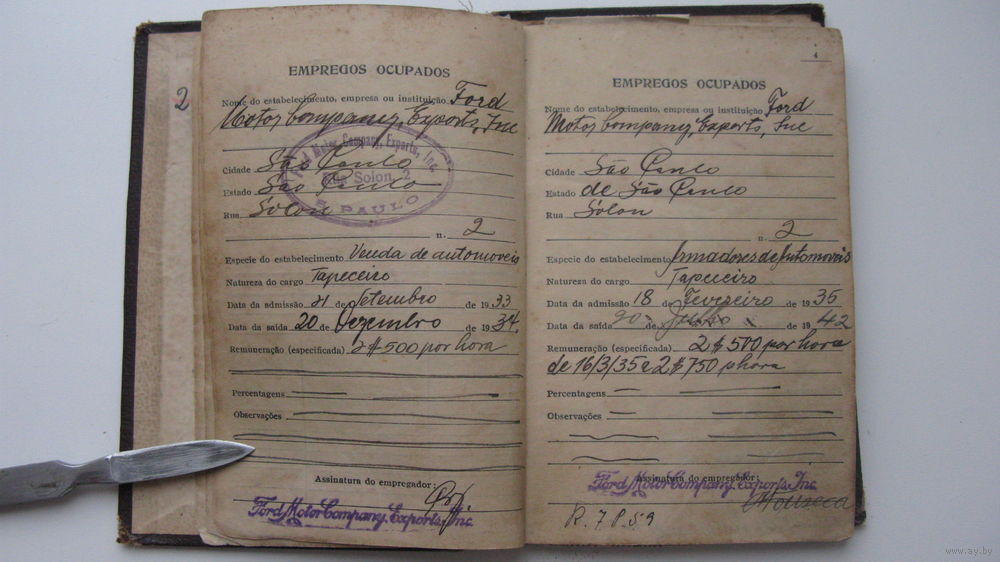 2
EMPREGOS OCUPADOS
Nome do estabelecimento, empresa ou instituição Ford
Motor Company, Exports, Inc
Cidade São Paulo
Estado São Paulo
Rua Solon
n. 2
Especie do estabelecimento Venda de automoveis
Natureza do cargo Tapeceiro
Data da admissão 21 de Setembro de 1933
Data da saída 20 de Dezembro de 1934.
Remuneração (especificada) 2$500 por hora
Percentagens
Observações
Assinatura do empregador:
Ford Motor Company, Exports, Inc.
Motor Company, Exports, Inc.
Rua Solon, 2
S. PAULO
4
EMPREGOS OCUPADOS
Nome do estabelecimento, empresa ou instituição Ford
Motor Company Exports, Inc
Cidade São Paulo
Estado de São Paulo
Rua Solon
n. 2
Especie do estabelecimento Armadores de Automoveis
Natureza do cargo Tapeceiro
Data da admissão 18 de Fevereiro de 1935
Data da saída 20 de de 1942
Remuneração (especificada) 2$500 por hora
de 16/3/35 a 2$750 p hora
Percentagens
Observações
Assinatura do empregador:
Ford Motor Company, Exports, Inc
Fonseca
R. 7 P. 59
www.ay.by